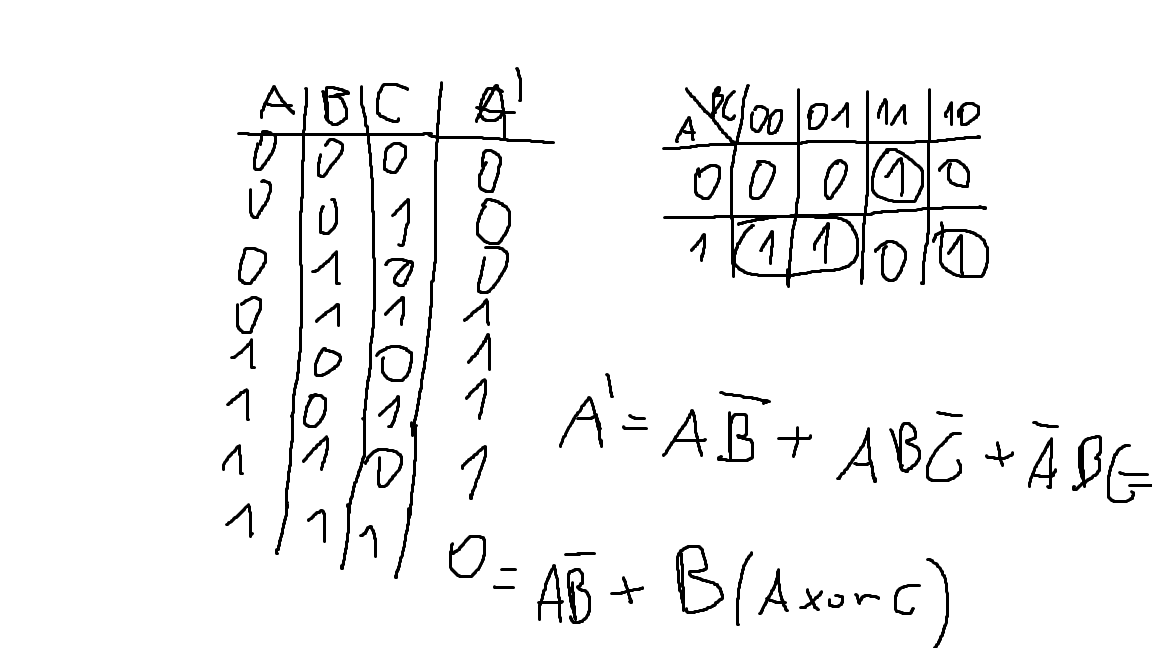 A B C A'
0 0 0 0
0 0 1 0
0 1 0 0
0 1 1 1
1 0 0 1
1 0 1 1
1 1 0 1
1 1 1 0
A\BC 00 01 11 10
0 0 0 1 0
1 1 1 0 1
A' = AB̅ + ABC̅ + A̅BC =
= AB̅ + B(A xor C)